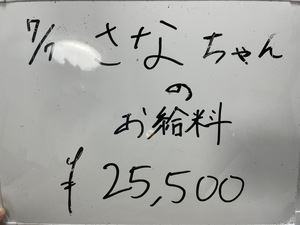 7/7 さなちゃん
の
お給料
¥25,500